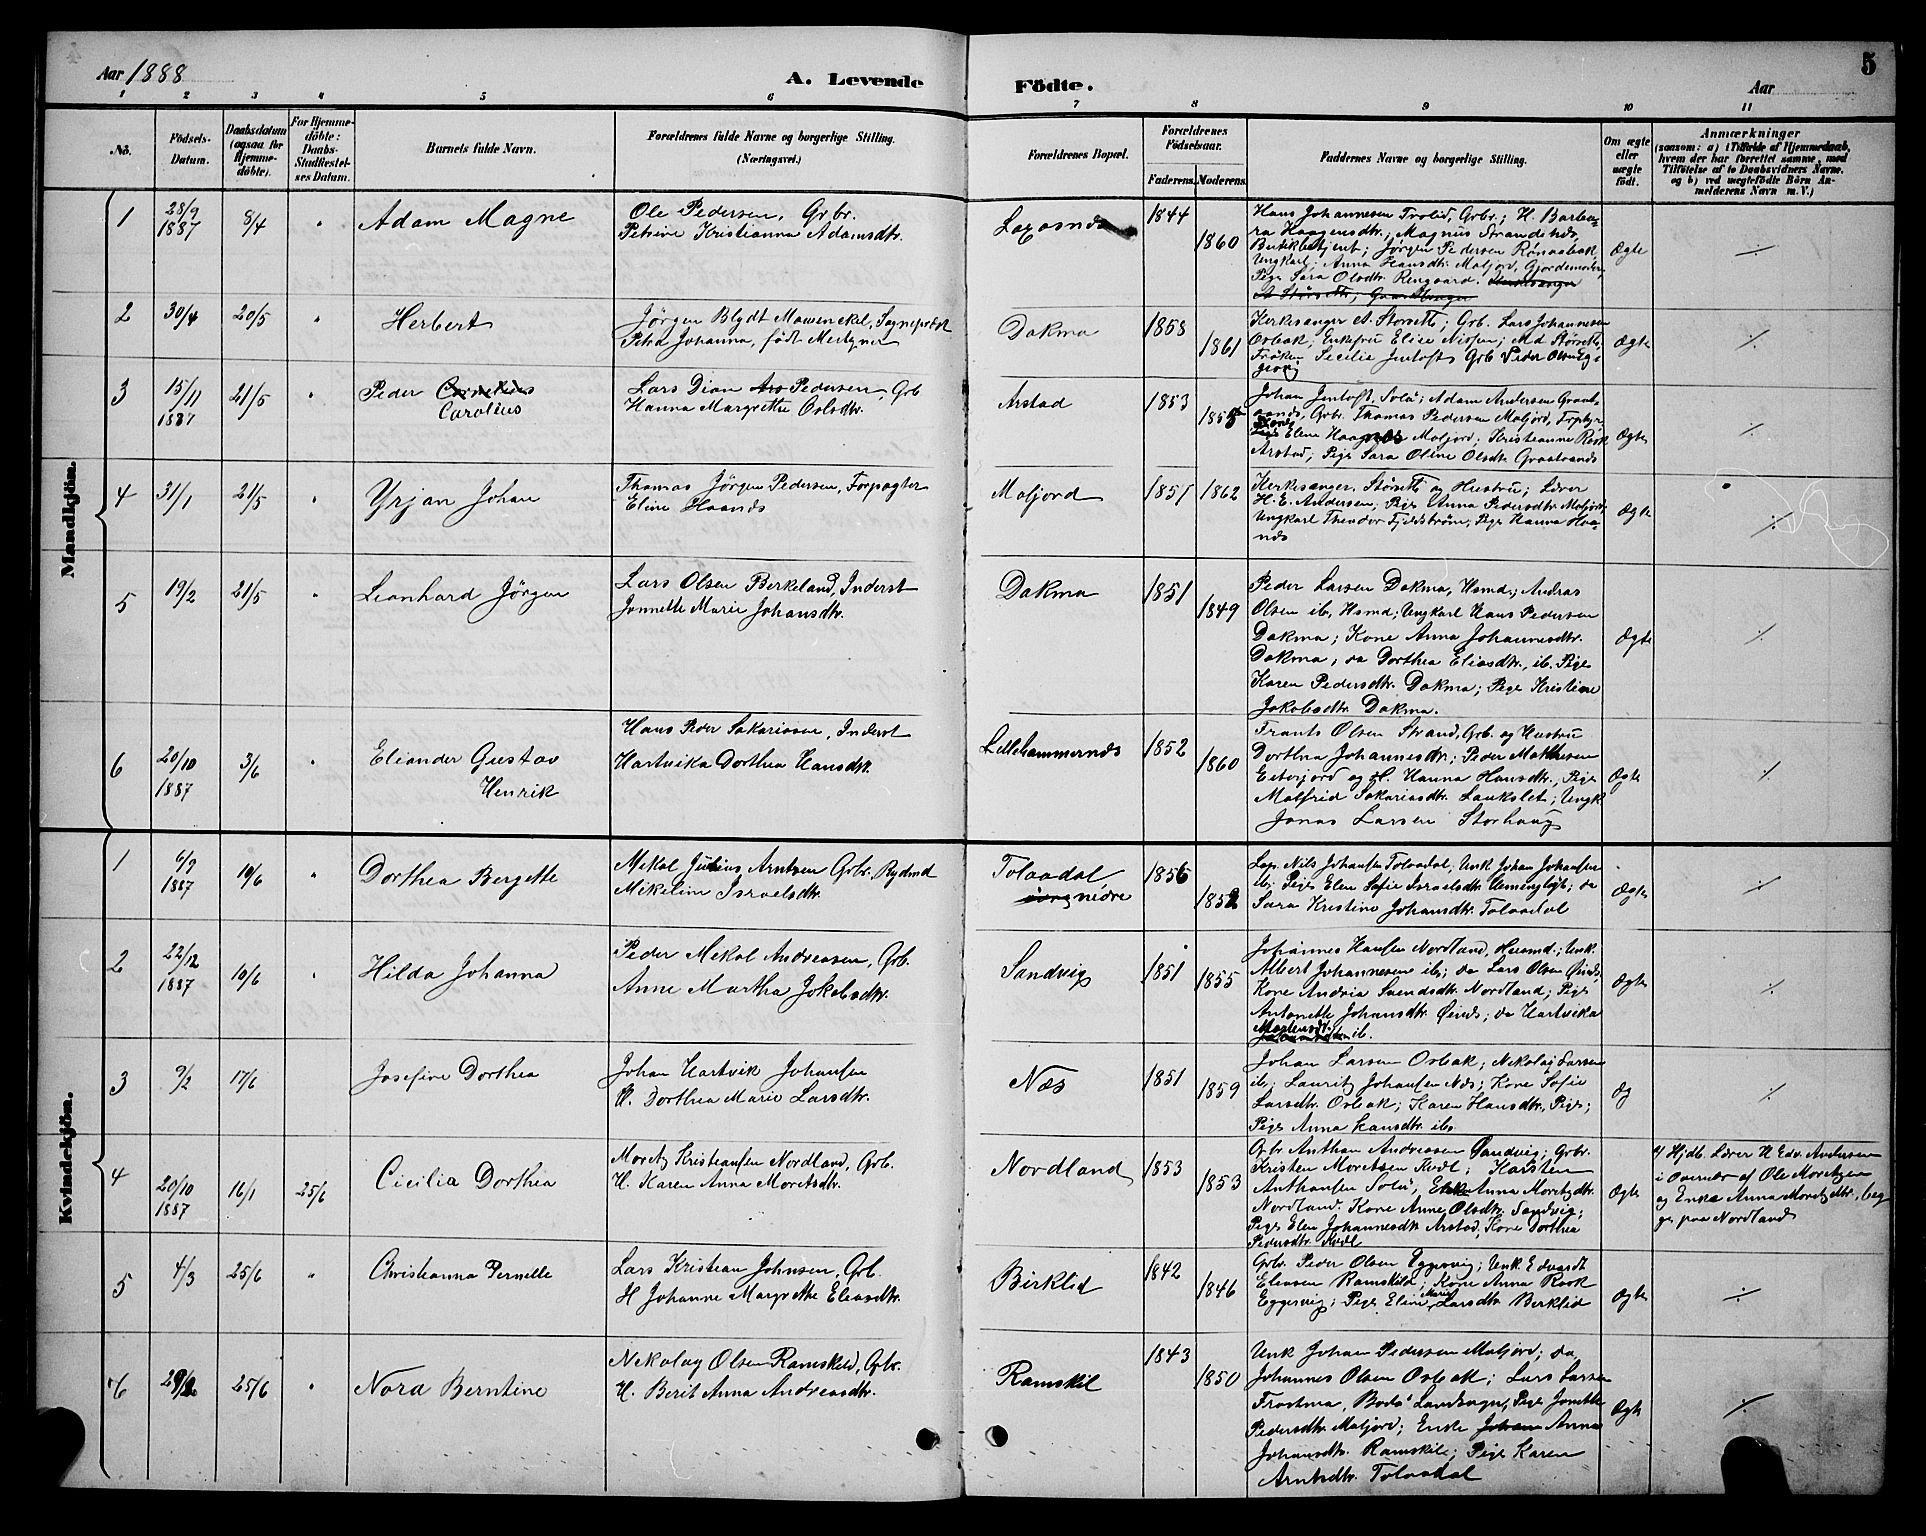 Aar 1888
A. Levende Födte.
Aar
5
1 2 3 4 5 6 7 8 9 10 11
No.
Födsels-
Datum.
Daabsdatum
(ogsaa for
Hjemme-
döbte).
For Hjemme-
döbte:
Daabs-
Stadfæstel-
ses Datum.
Barnets fulde Navn.
Forældrenes fulde Navne og borgerlige Stilling.
(Næringsvei.)
Forældrenes Bopæl.
Forældrenes
Födselsaar.
Faderens. Moderens.
Faddernes Navne og borgerlige Stilling.
Om ægte
eller
uægte
födt.
Anmærkninger
(saasom: a) i Tilfælde af Hjemmedaab,
hvem der har forrettet samme, med
Tilföielse af to Daabsvidners Navne.
og b) ved uægtefödte Börn An-
melderens Navn m. V.)
Mandkjön.
1
28/9
1887
8/4
"
Adam Magne
Ole Pedersen, Gbr.
Petrine Kristianna Adamsdtr.
1844
1860
Hans Johannesen Trolid, Gbr.; H. Barba-
ra Haagensdtr.; Magnus Strandenæs,
Butikbetjent; Jørgen Pedersen
Ungkarl; Anna Hansdtr. Maljord, Gjordemoder;
Pige Sara Olsdtr. Rengaard.
Ægte
⁒
2
30/4
20/5
"
Herbert
Jörgen Blydt Mowinckel, Sogneprest
Petra Johanna, födt
Dakma
1858
1861
Kirkesanger A. Storsett; Gbr. Lars Johannesen
Osbak; Enkefru Elise Nissen; Md Störsett;
Frøken Cecilie Jentoft; Gbr Peder Olsen Eg-
gesvig
Ægte
⁒
3
15/11
1887
21/5
"
Peder Cornelius
Carolius
Lars Dian Pedersen, Gbr
Hanna Margrethe Olsdtr.
Arstad
1853
1855
Johan Jentoft, Solø; Adam Andersen Graat-
aands, Gbr. Thomas Pedersen Maljord, Forp.;
Kone Eline Haagens Maljord; Kristianne Rook
Arstad; Pige Sara Oline Olsdtr. Graataands
Ægte
⁒
4
31/1
21/5
"
Yrjan Johan
Thomas Jörgen Pedersen, Forpagter
Eline Haands
Maljord
1851
1862
Kirkesanger Störsett og Hustru; Lærer
H. E. Andersen; Pige Anna Pedersdtr Maljord;
Ungkarl Theodor Fjeldstrøm; Pige Hanna Haa-
nds
Ægte
⁒
5
19/2
21/5
"
Leonhard Jörgen
Lars Olsen Berkeland, Inderst
Jonnette Marie Johansdtr.
Dakma
1851
1849
Peder Larsen Dakma, Hsmd; Andras
Olsen ib, Hsmd; Ungkarl Hans Pedersen
Dakma; Kone Anna Johannesdtr.
Dakma; do Dorthea Eliasdtr., ib. Pige
Karen Pedersdtr. Dakma; Pige Kristine
Jakobsdtr. Dakma.
Ægte
⁒
6
20/10
1887
3/6
"
Eliander Gustav
Henrik
Hans Peder Sakariasen, Inderst
Hartvika Dorthea Hansdtr.
Lillehammernæs
1852
1860
Frants Olsen Strand, Gbr. og Hustru
Dorthea Johannesdtr; Peder Mathisen
Eiterjord og H. Hanna Hansdtr., Pige
Malfrid Sakariasdtr. Laukslet; Ungk
Jonas Larsen Storhaug
Ægte
⁒
Kvindekjön.
1
6/9
1887
10/6
"
Dorthea Bergette
Mikal Julius Arntsen Gbr. Rydnd
Mikeline Israelsdtr.
Tolaadal
nedre
1856
1852
Lap. Nils Johansen Tolaadal, Unk Johan Johansen
ib; Pige Elen Sofie Israelsdtr.; do
Sara Kristine Johansdtr. Tolaadal
Ægte
⁒
2
22/12
1887
10/6
"
Hilda Johanna
Peder Mikal Andreasen, Gbr.
Anne Martha Jakobsdtr.
Sandvig
1851
1855
Johannes Hansen Nordland, Husmd.; Unk.
Albert Johannesen ib; do Lars Olsen Øinæs,
Kone Andria Svendsdtr. Nordland; Pige
Antonette Johansdtr. Øinæs; do Hartvika
Mortensdtr. ib.
Ægte
⁒
3
9/2
17/6
Josefine Dorthea
Johan Hartvik Johansen
H. Dorthea Marie Larsdtr.
Næs
1851
1859
Johan Larsen Osbak; Nikolaj Larsen
ib; Lauritz Johansen Næs; Kone Sofie
Larsdtr. Osbak; Karen Hansdtr., Pige;
Pige Anna Hansdtr ib.
Æg
⁒
4
20/10
1887
16/1
25/6
Cicilia Dorthea
Moritz Kristiansen Nordland, Gbr.
H. Karen Anna Moritsdtr.
Nordland
1853
1853
Gbr Anthon Andreasen Sandvig; Gbr.
Kristen Moritsen Kvæl; Karsten
Anthonsen Solø; Enke Anna Moritzdtr.
Nordland. Kone Anne Olsdtr. Sandvig;
Pige Elen Johannesdtr Arstad; Kone Dorthea
Pedersdtr Kvæl
Ægte
4/ Hjdb. Lærer H Edv. Andersen
i Overvær af Ole Moritzen
og Enke Anna Moritzdtr., beg
ge paa Nordland
5
4/3
25/6
"
Christianna Pernille
Lars Kristian Johnsen, Gbr.
H Johanne Margrethe Eliasdtr.
Birklid
1842
1846
Gbr. Peder Olsen Eggesvig; Unk Edvardt
Eliasen Ramskild; Kone Anna Rook
Eggesvig; Pige Eline Marie Larsdtr Berklid
Ægte
⁒
6
25/6
"
Nora Berntine
Nikolay Olsen Ramskild, Gbr.
H. Berit Anna Andreasdtr.
Ramskil
1843
1850
Unk Johan Pedersen Maljord; do
Johannes Olsen Osbak; Lars Larsen
Frostmo, Bodø Landsogn, Pige Jonette
Pedersdtr Maljord; Enke Johan Anna
Johansdtr. Ramskile; Pige Karen
Arntsdtr. Tolaadal
Ægte
⁒